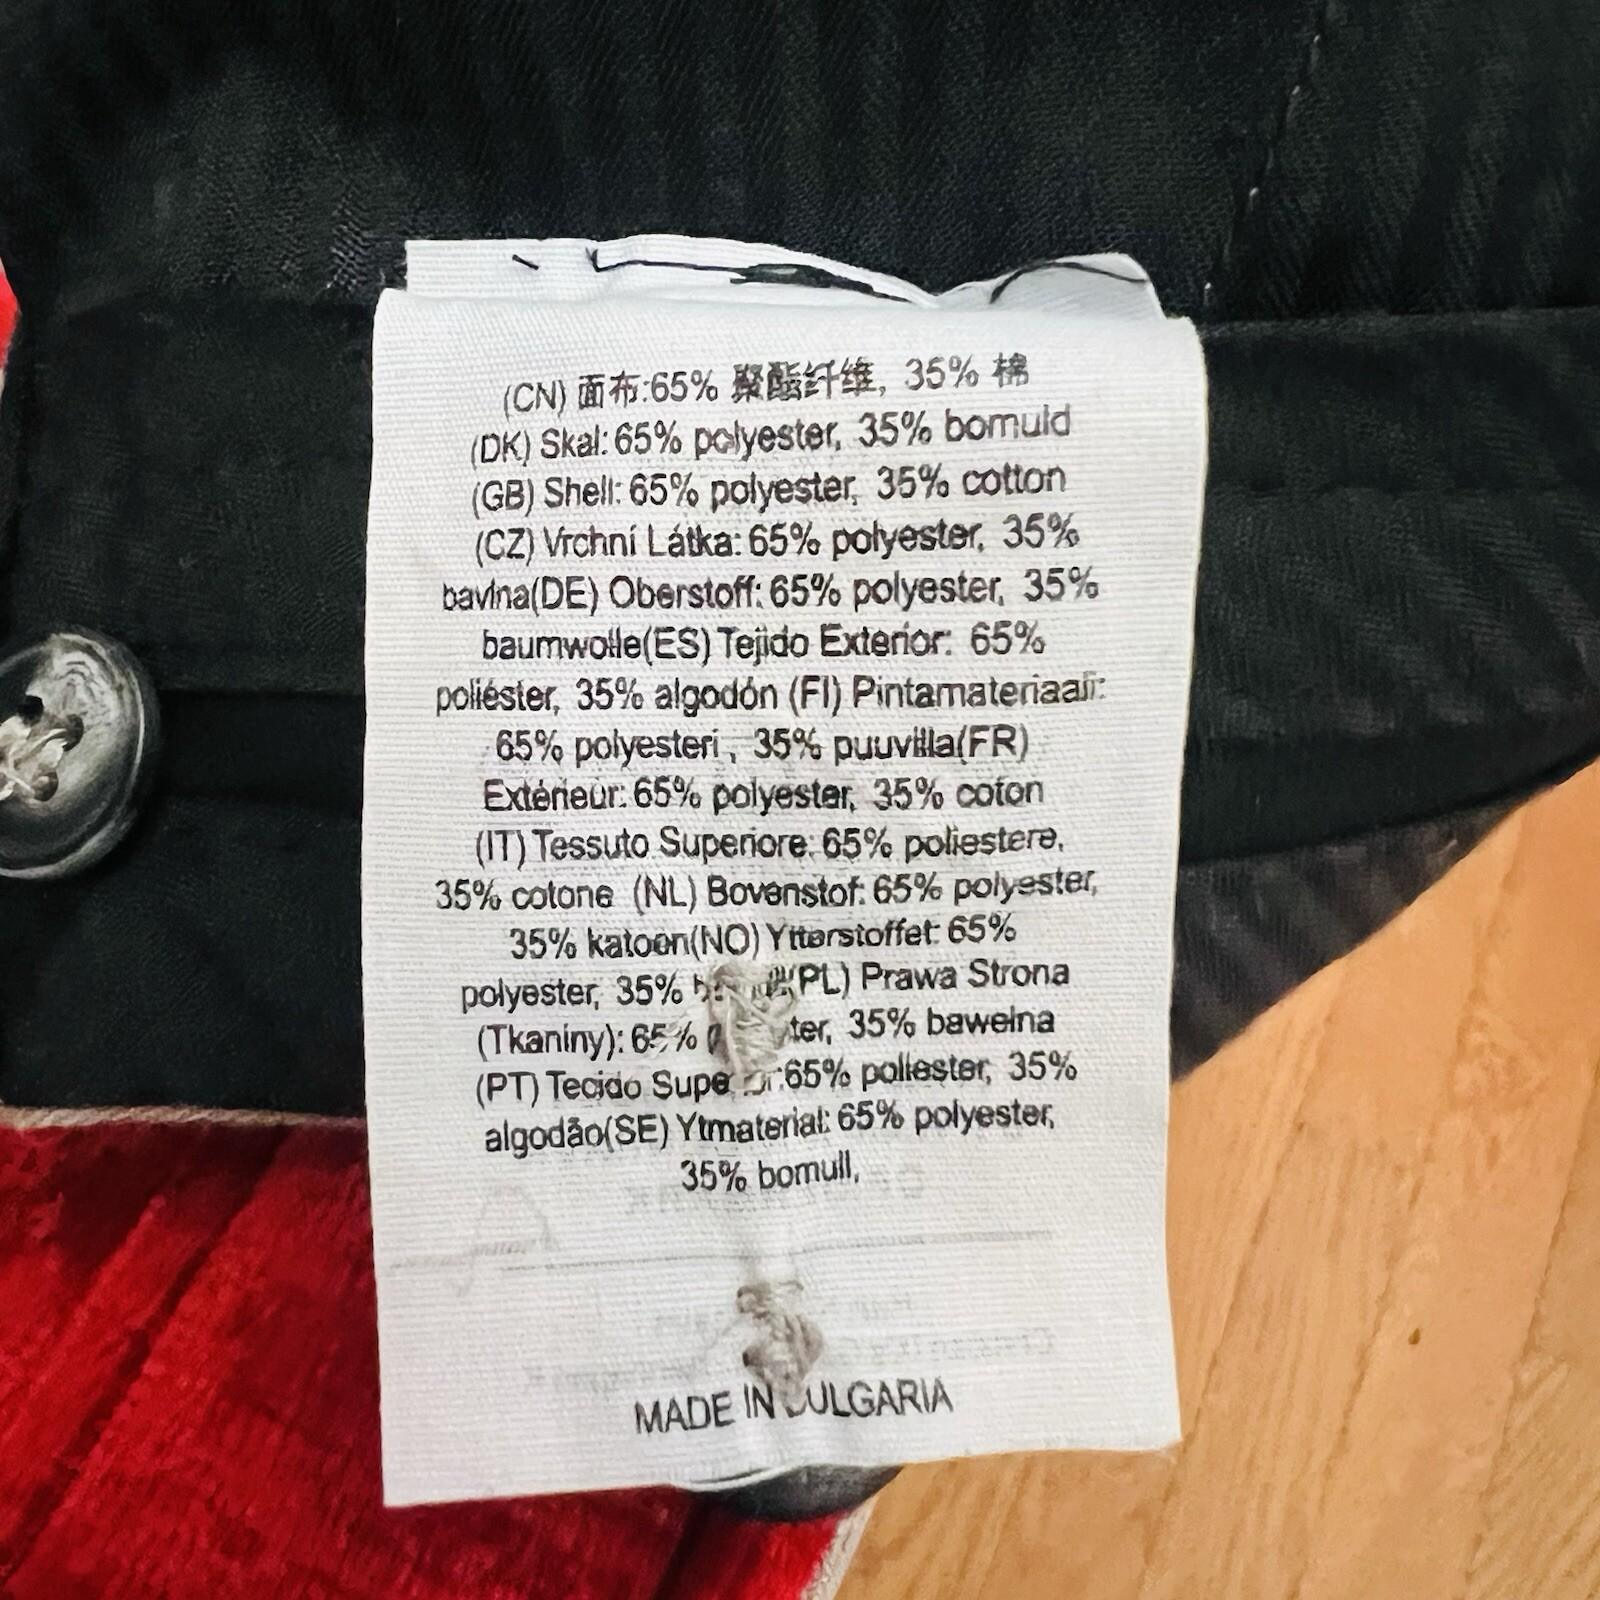 (CN) 面布:65% 聚酯纤维, 35% 棉
(DK) Skal: 65% polyester, 35% bomuld
(GB) Shell: 65% polyester, 35% cotton
(CZ) Vrchní Látka: 65% polyester, 35%
bavlna(DE) Oberstoff: 65% polyester, 35%
baumwolle(ES) Tejido Exterior: 65%
poliéster, 35% algodón (FI) Pintamateriaali:
65% polyesteri , 35% puuvilla(FR)
Extérieur: 65% polyester, 35% coton
(IT) Tessuto Superiore: 65% poliestere,
35% cotone (NL) Bovenstof: 65% polyester,
35% katoen(NO) Ytterstoffet: 65%
polyester, 35% (PL) Prawa Strona
(Tkaniny): 65% 35% bawełna
(PT) Tecido :65% poliester, 35%
algodão(SE) Ytmaterial: 65% polyester,
35% bomull,
MADE IN BULGARIA